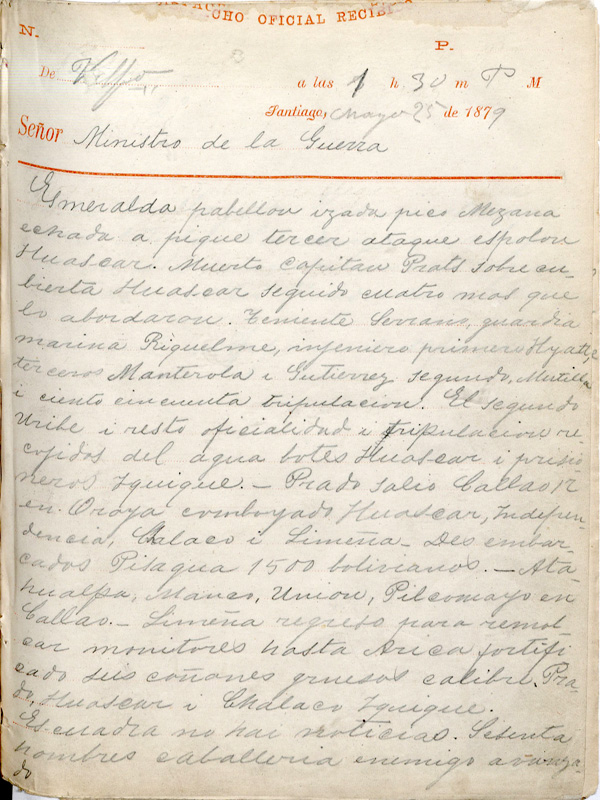 CHO OFICIAL RECIBI
N.
P.
De Valpso. a las 1 h 30 m P M
Santiago, Mayo 25 de 1879
Señor Ministro de la Guerra
Esmeralda pabellon izada pico Mezana
echada a pique tercer ataque espolon
Huascar. Muerto Capitan Prats sobre cu-
bierta Huascar seguido cuatro mas que
lo abordaron. Teniente Serrano, guardia
marina Riquelme, injeniero primero Hyatt,
terceros Manterola i Gutierrez segundo, Mutilla
i ciento cincuenta tripulacion. El segundo
Uribe i resto oficialidad i tripulacion re-
cojidos del agua botes Huascar i prisio
neros Iquique. — Prado salio Callao 17
en Oroya comboyado Huascar, Indepen-
dencia, Chalaco i Limeña — Desembar-
cados Pisagua 1500 bolivianos. — Ata
hualpa, Manco, Union, Pilcomayo en
Callao. — Limeña regreso para remol-
car monitores hasta Arica fortifi
cado seis cañones gruesos calibre. Pra-
do, Huascar i Chalaco Iquique.
Escuadra no hai noticias. Sesenta
hombres caballeria enemigo avanza-
do